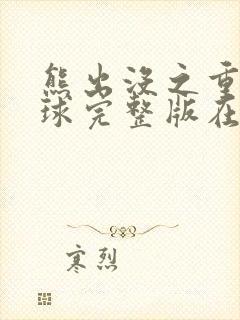 熊出没之重
球完整版在
寒烈